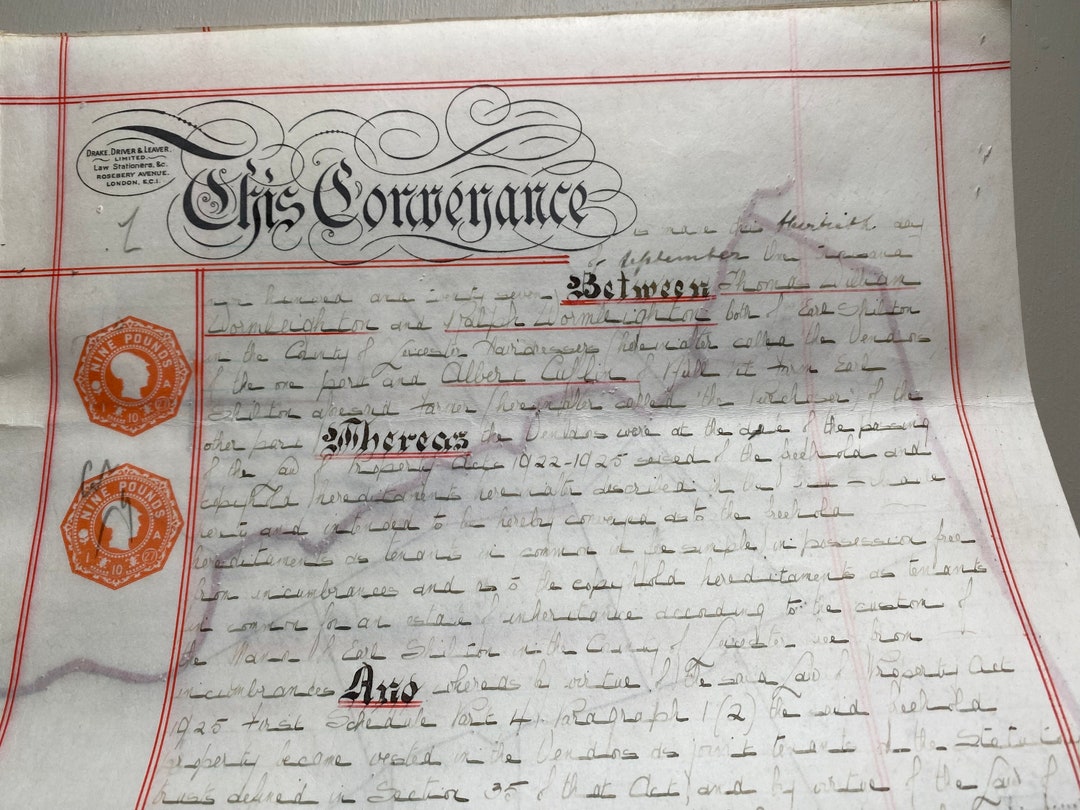 DRAKE, DRIVER & LEAVER,
LIMITED
Law Stationers, &c.
ROSEBERY AVENUE.
LONDON, E.C.1.
This Conveyance
is made the thirtieth day
of September One thousand
nine hundred and twenty seven Between Thomas William
Wormleighton and Ralph Wormleighton both of Earl Shilton
in the County of Leicester Hairdressers (hereinafter called the Vendors
of the one part and Albert of Earl
Shilton aforesaid Farmer (hereinafter called the Purchaser) of the
other part Whereas the Vendors were at the date of the passing
of the Law of Property Acts 1922-1925 seised of the freehold and
copyhold hereditaments hereinafter described
and intended to be hereby conveyed as to the freehold
hereditaments as tenants in common in fee simple in possession free
from incumbrances and as to the copyhold hereditaments as tenants
in common for an estate of inheritance according to the custom of
the Manor of Earl Shilton in the County of Leicester free from
incumbrances And whereas by virtue of the said Law of Property Act
1925 First Schedule Part 4 Paragraph 1(2) the said freehold
property became vested in the Vendors as joint tenants the Statutory
trusts defined in Section 35 of that Act, and by virtue of the Law of
NINE POUNDS
A
10
NINE POUNDS
A
10